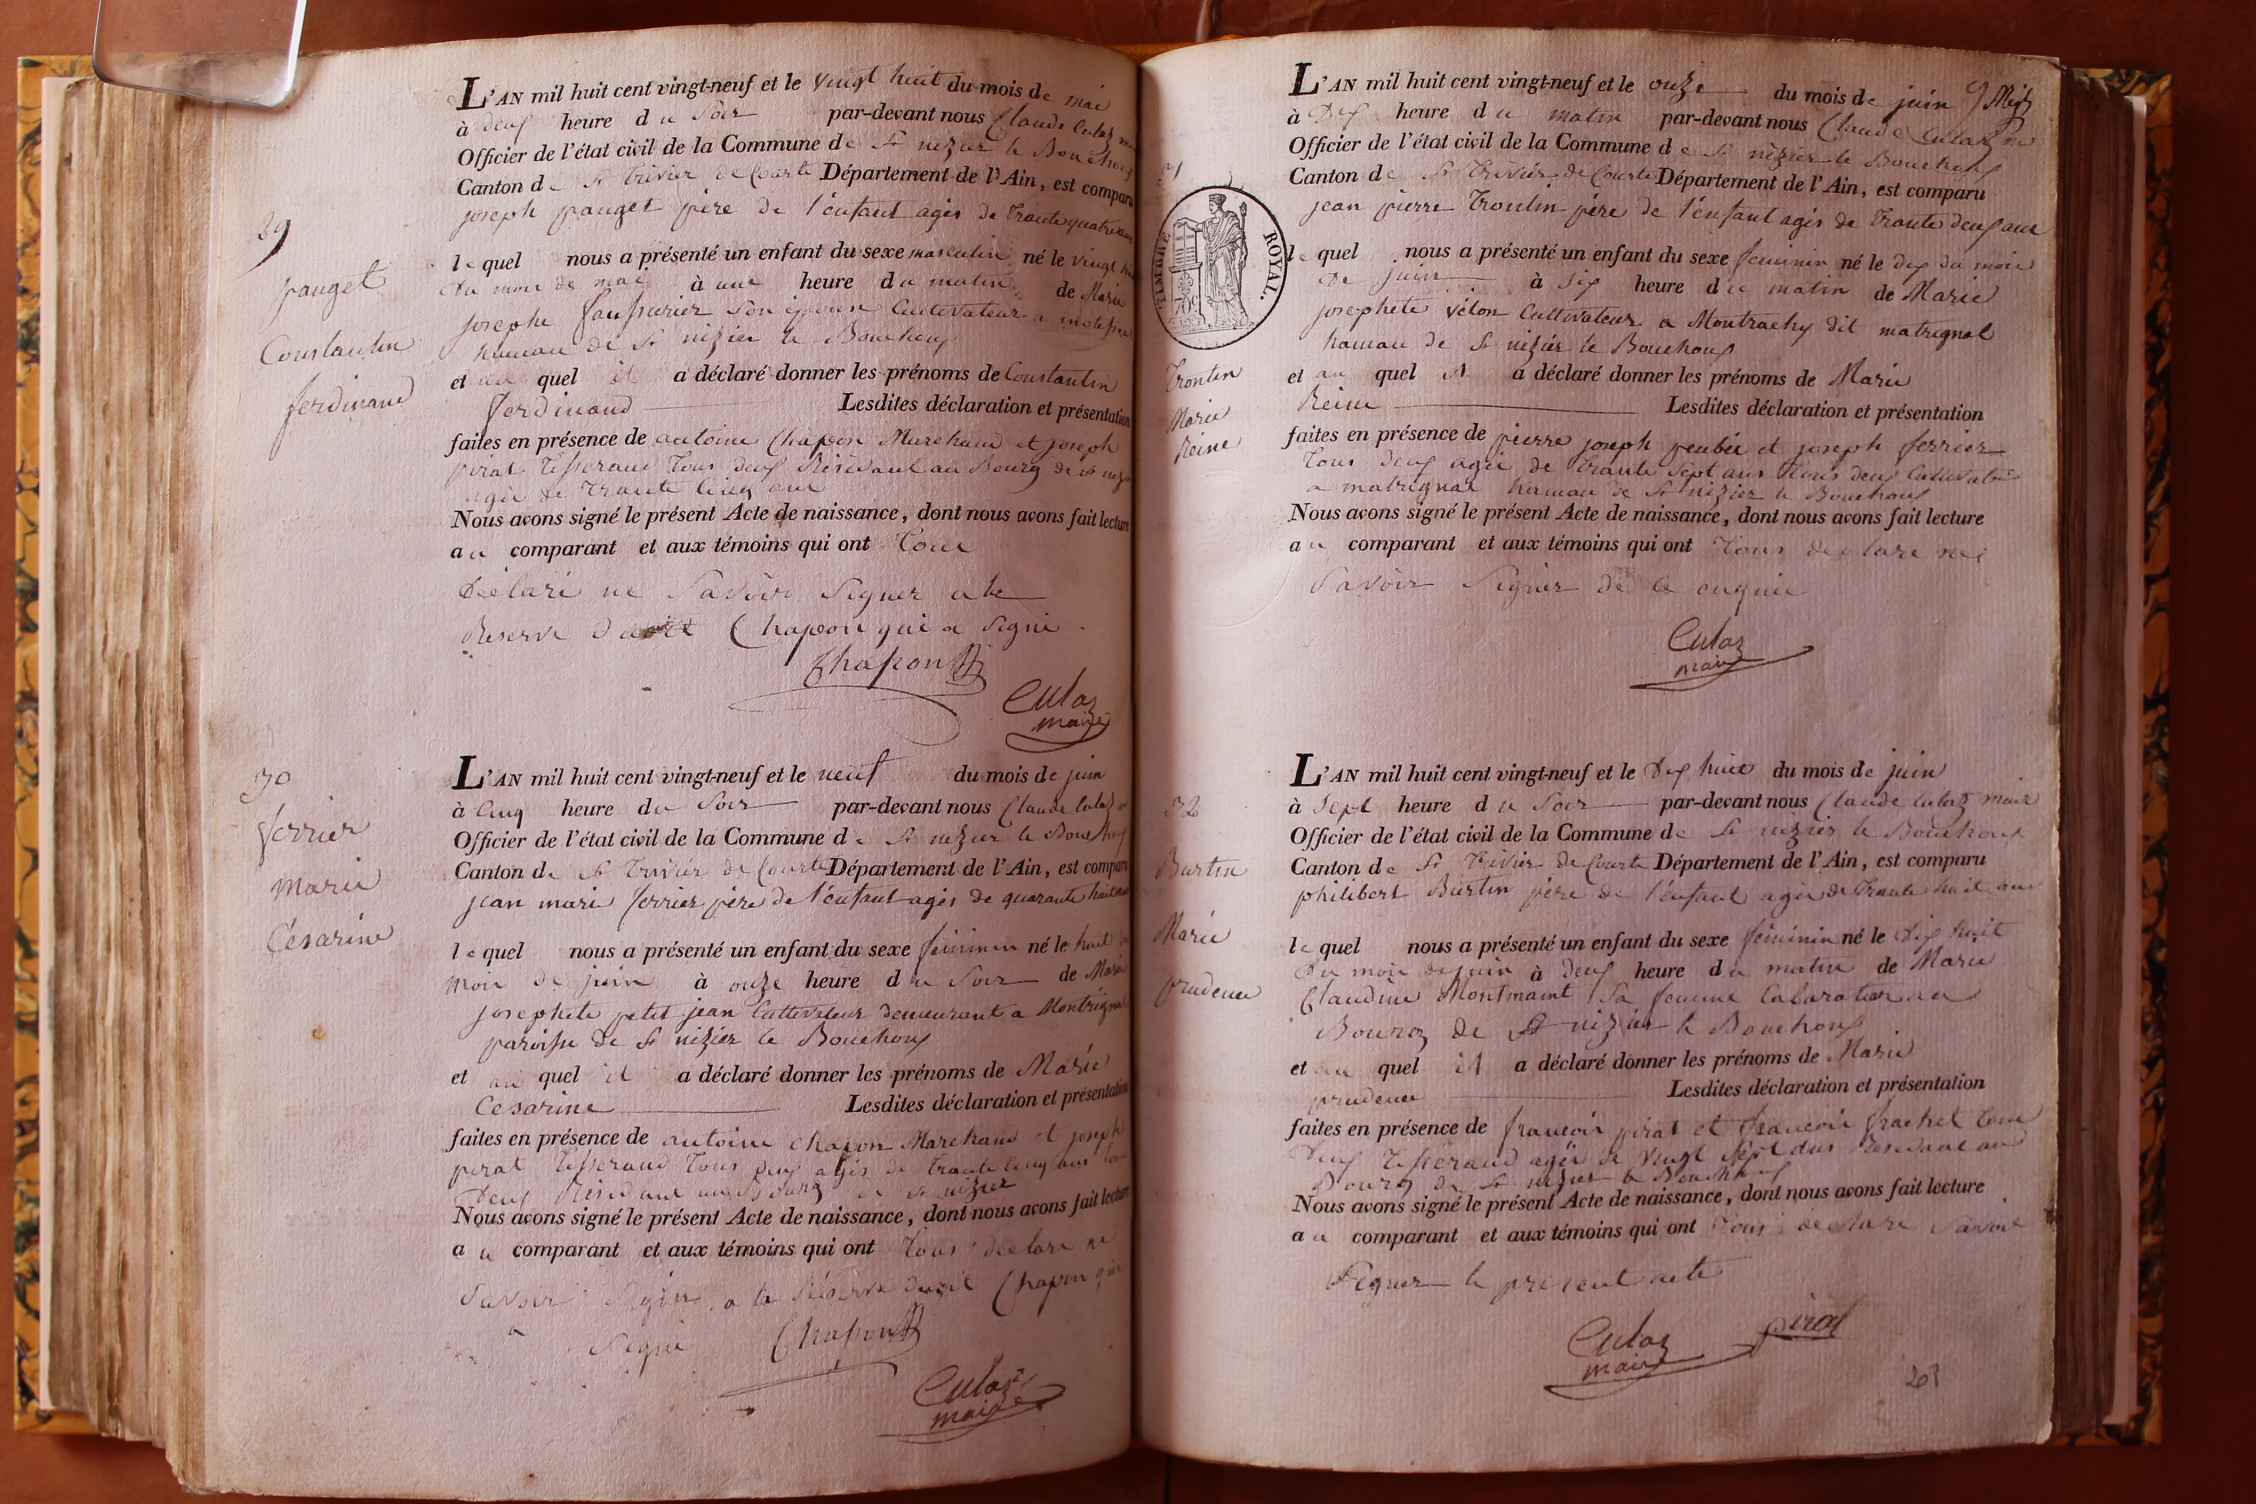 29
pauget
Constantin
ferdinand
L'AN mil huit cent vingt-neuf et le vingt huit du mois de mai
à deux heure du Soir par-devant nous Claude Culaz
Officier de l'état civil de la Commune de St nizier le Bouchoux
Canton de St trivier de Courte Département de l'Ain, est comparu
joseph pauget père de l'enfant agés de trante quatre ans
le quel nous a présenté un enfant du sexe masculin né le vingt
du moi de mai à une heure du matin de Marie
josephe son épouse Cultivateur a
hameau de St nizier le Bouchoux
et au quel il a déclaré donner les prénoms de Constantin
ferdinand Lesdites déclaration et présentation
faites en présence de antoine Chapon Marchand et joseph
pirat tisserand tous deux Résidant au Bourg de st
agée de trante cinq ans
Nous avons signé le présent Acte de naissance, dont nous avons fait lecture
au comparant et aux témoins qui ont tous
déclaré ne Savoir Signer a la
Reserve dudit Chapon qui a Signé
Chapon
Culaz
maire
30
ferrier
Marie
Césarine
L'AN mil huit cent vingt-neuf et le neuf du mois de juin
à Cinq heure du Soir par-devant nous Claude Culaz
Officier de l'état civil de la Commune de St nizier le Bouchoux
Canton de St trivier de Courte Département de l'Ain, est comparu
jean marie ferrier père de l'enfant agés de quarante huit ans
le quel nous a présenté un enfant du sexe féminin né le huit du
moi de juin à onze heure du Soir de Marie
josephete petit jean Cultivateur demeurant a
paroisse de St nizier le Bouchoux
et au quel il a déclaré donner les prénoms de Marie
Cesarine Lesdites déclaration et présentation
faites en présence de antoine chapon Marchand et joseph
pirat tisserand tous deux agés de trante cinq ans
deux Résidant au Bourg de st nizier
Nous avons signé le présent Acte de naissance, dont nous avons fait lecture
au comparant et aux témoins qui ont tous déclare ne
Savoir Signer a la Réserve dudit Chapon qui
a Signé Chapon
Culaz
maire
31
TIMBRE ROYAL.
trontin
Marie
Reine
L'AN mil huit cent vingt-neuf et le onze du mois de juin
à Dix heure du matin par-devant nous Claude Culaz
Officier de l'état civil de la Commune de St nizier le Bouchoux
Canton de St trivier de Courte Département de l'Ain, est comparu
jean pierre trontin père de l'enfant agés de trante deux ans
le quel nous a présenté un enfant du sexe féminin né le dix du mois
De juin à Six heure du matin de Marie
josephete vélon Cultivateur a Montrachy dit matrignat
hameau de St nizier le Bouchoux
et au quel il a déclaré donner les prénoms de Marie
Reine Lesdites déclaration et présentation
faites en présence de pierre joseph et joseph ferrier
tous deux agée de trante Sept ans tous deux
a matrignat hameau de St nizier le Bouchoux
Nous avons signé le présent Acte de naissance, dont nous avons fait lecture
au comparant et aux témoins qui ont tous déclare ne
Savoir Signer de ce enquie
Culaz
maire
32
Burtin
Marie
prudence
L'AN mil huit cent vingt-neuf et le Dix huit du mois de juin
à Sept heure du Soir par-devant nous Claude Culaz maire
Officier de l'état civil de la Commune de St nizier le Bouchoux
Canton de St trivier de Courte Département de l'Ain, est comparu
philibert Burtin père de l'enfant agée de trante huit ans
le quel nous a présenté un enfant du sexe féminin né le dix huit
du moi de juin à deux heure du matin de Marie
Claudine Montmaint Sa femme au
Bourg de St nizier le Bouchoux
et au quel il a déclaré donner les prénoms de Marie
prudence Lesdites déclaration et présentation
faites en présence de francois pirat et francois frachet tous
deux tisserand agée de vingt Sept ans Résidant au
Bourg de St nizier le Bouchoux
Nous avons signé le présent Acte de naissance, dont nous avons fait lecture
au comparant et aux témoins qui ont tous déclare Savoir
Signer le present acte
Culaz pirat
maire